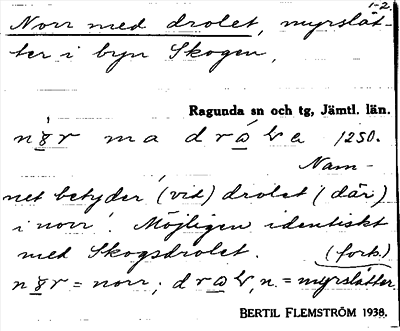 1-2.
Norr med drolet, myrslåt-
ter i byn Skogen,
Ragunda sn och tg, Jämtl. län.
1250.
Nam-
net betyder, (vid) drolet (där)
i norr. Möjligen identiskt
med Skogsdrolet. (forts.)
= norr; n. = myrslåtter.
BERTIL FLEMSTRÖM 1938.